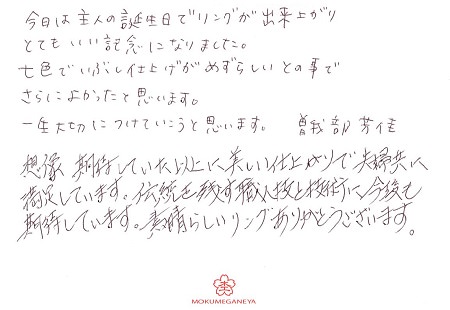 今日は主人の誕生日でリングが出来上がり
とてもいい記念になりました。
七色でいぶし仕上げがめずらしいとの事で
さらによかったと思います。
一生大切につけていこうと思います。 曽我部芳佳
想像、期待していた以上に美しい仕上がりで夫婦共に
満足しています。伝統を残す職人技と技術に今後も
期待しています。素晴らしいリングありがとうございます。
MOKUMEGANEYA